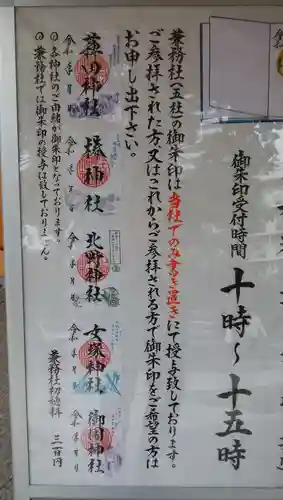 御朱印受付時間
十時〜十五時
兼務社（五社）の御朱印は当社でのみ書き置きにて授与致しております。
ご参拝された方又はこれからご参拝される方で御朱印をご希望の方は
お申し出下さい。
神社
令和 年 月
神社
令和 年 月
北野神社
令和 年 月
女塚神社
令和 年 月
御園神社
令和 年 月
兼務社初穂料 三百円
◎各神社のご由緒が御朱印となっております。
◎兼務社では御朱印の授与は致しておりません。